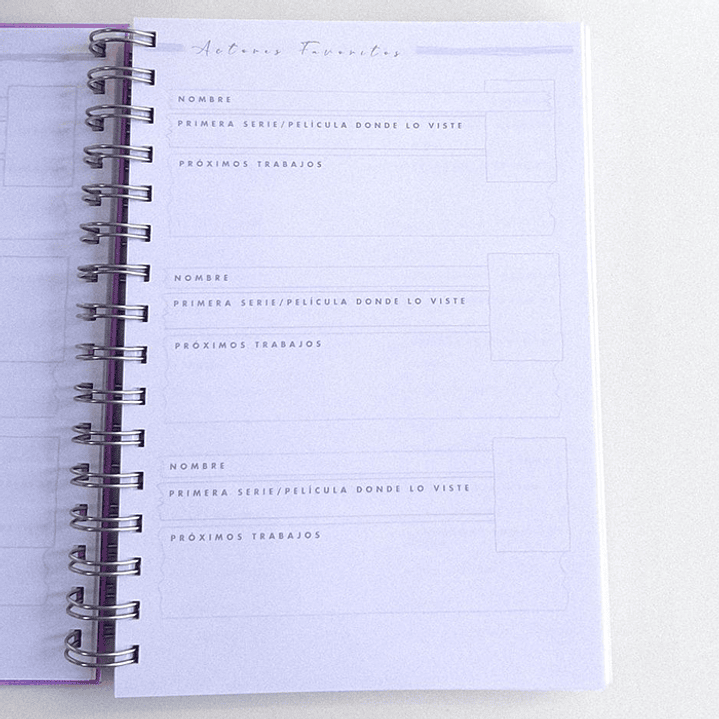 Actores Favoritos
NOMBRE
PRIMERA SERIE/PELÍCULA DONDE LO VISTE
PRÓXIMOS TRABAJOS
NOMBRE
PRIMERA SERIE/PELÍCULA DONDE LO VISTE
PRÓXIMOS TRABAJOS
NOMBRE
PRIMERA SERIE/PELÍCULA DONDE LO VISTE
PRÓXIMOS TRABAJOS